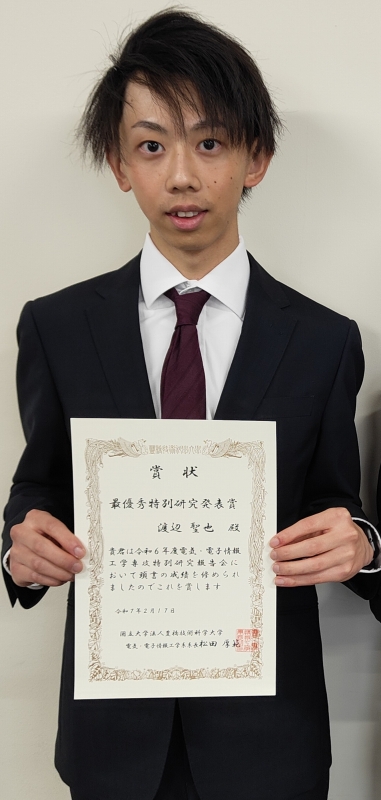 賞状
最優秀特別研究発表賞
渡辺聖也 殿
貴君は令和6年度電気・電子情報
工学専攻特別研究報告会に
おいて頭書の成績を修められ
ましたのでこれを賞します
令和7年2月17日
国立大学法人豊橋技術科学大学
電気・電子情報工学系系長 松田 厚範